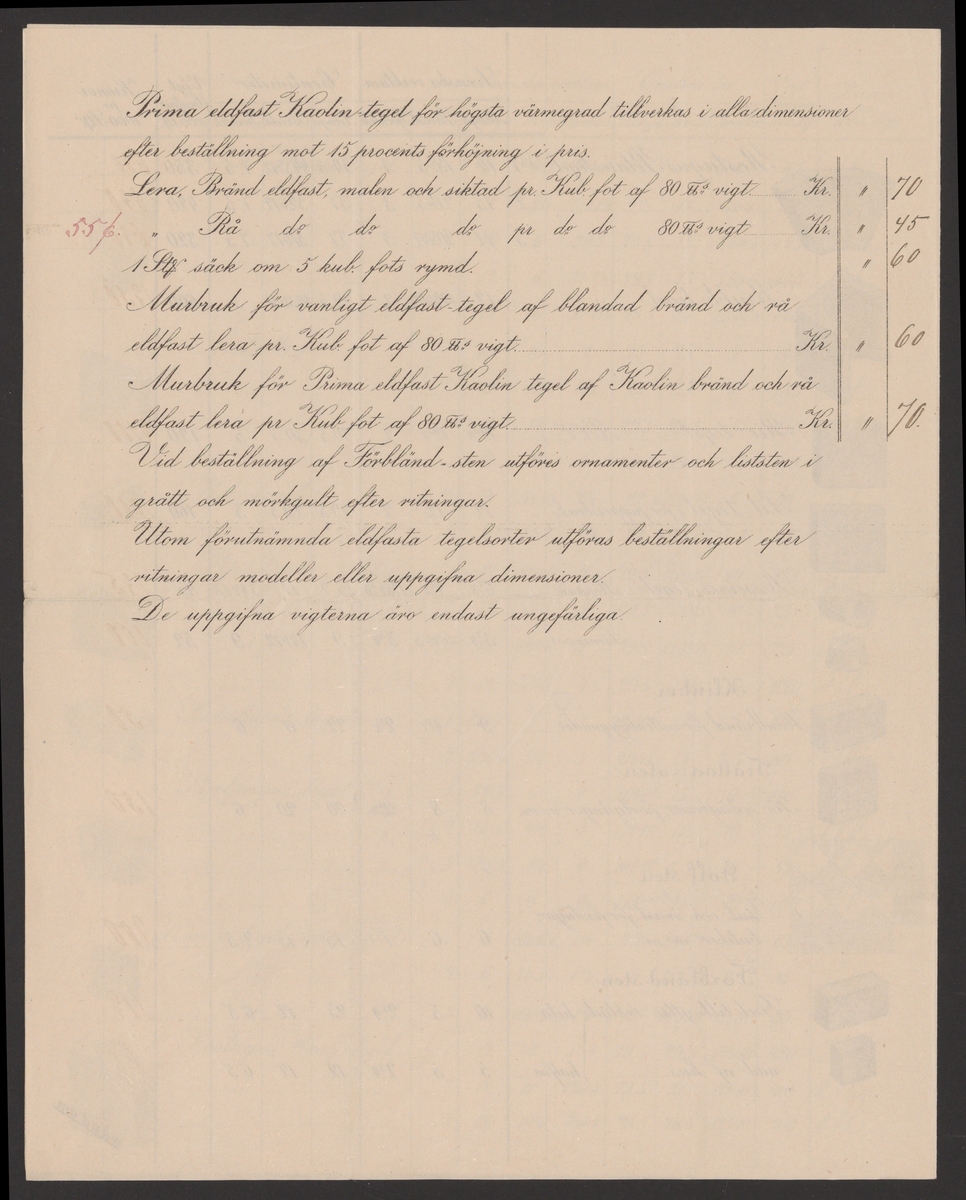 Prima eldfast Kaolin-tegel för högsta värmegrad tillverkas i alla dimensioner
efter beställning mot 15 procents förhöjning i pris.
Lera, Bränd eldfast, malen och siktad pr. Kub fot af 80 ℔s vigt. Kr. " 70
55/6. " Rå do do do pr do do 80 ℔s vigt Kr. " 45
1 St säck om 5 kub. fots rymd. " 60
Murbruk för vanligt eldfast-tegel af blandad bränd och rå
eldfast lera pr. Kub fot af 80 ℔s vigt. Kr. " 60
Murbruk för Prima eldfast Kaolin tegel af Kaolin bränd och rå
eldfast lera pr Kub fot af 80 ℔s vigt. Kr. " 70.
Vid beställning af Förbländ-sten utföres ornamenter och liststen i
grått och mörkgult efter ritningar.
Utom förutnämnda eldfasta tegelsorter utföras beställningar efter
ritningar modeller eller uppgifna dimensioner.
De uppgifna vigterna äro endast ungefärliga.